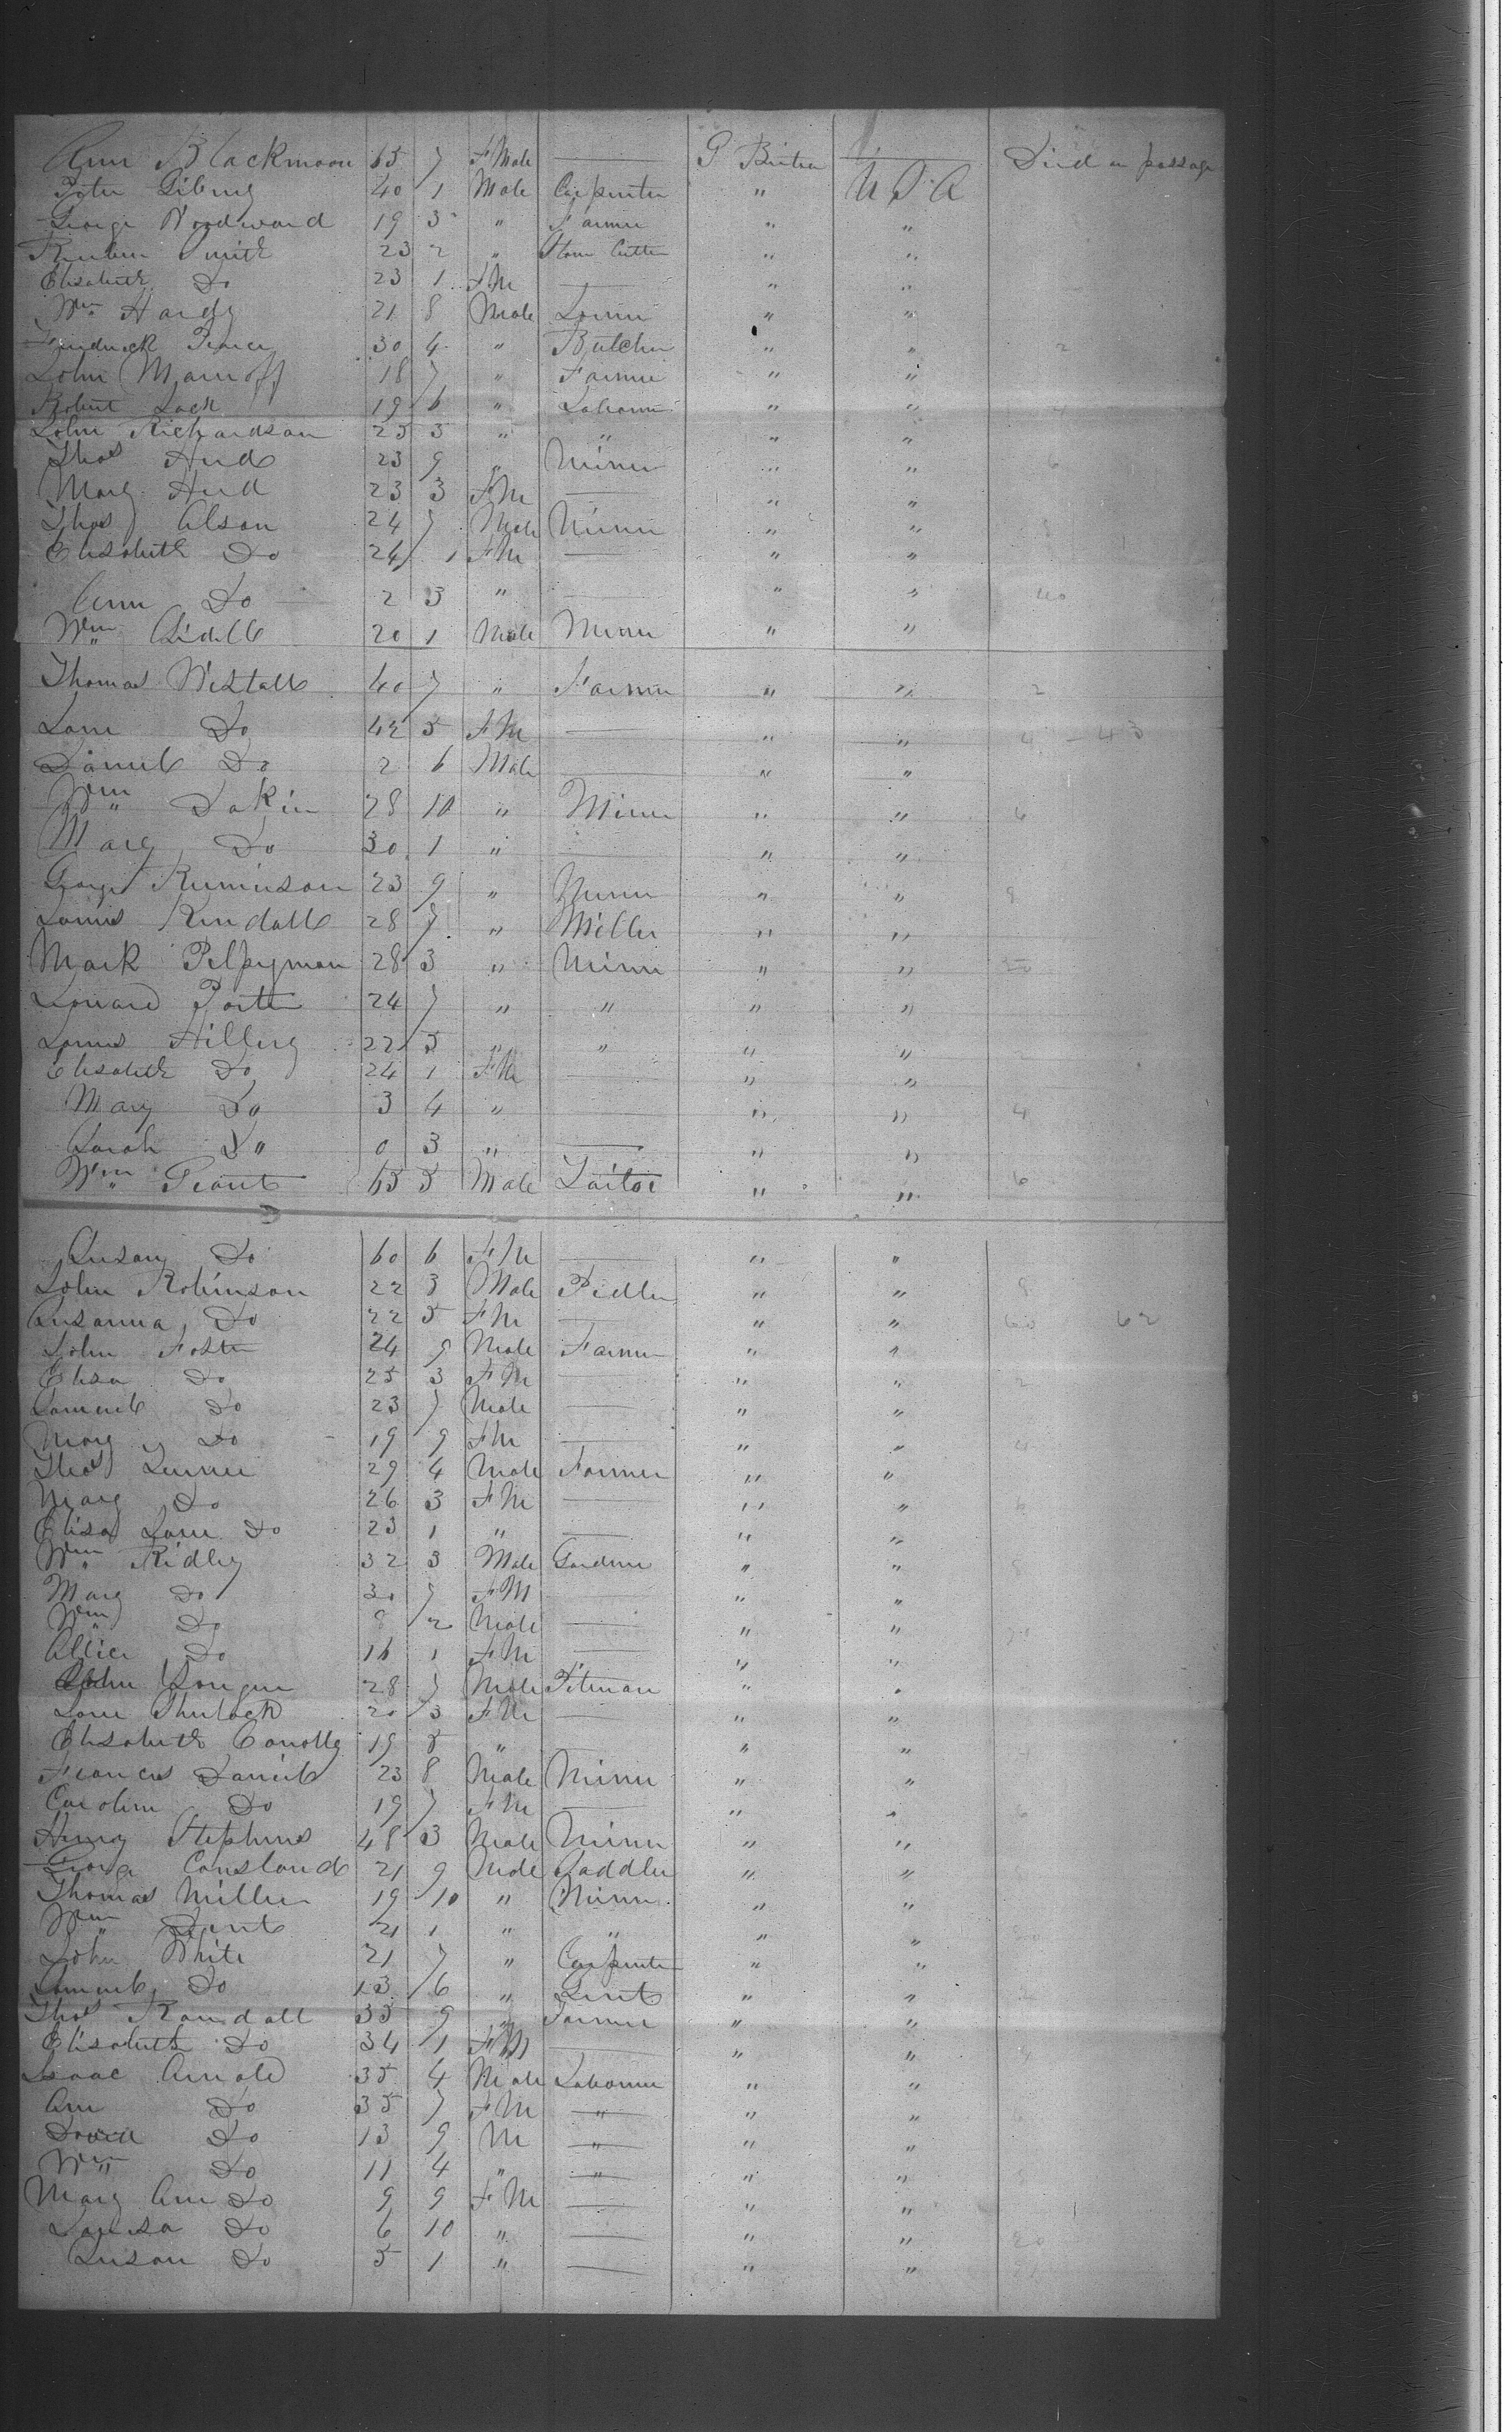 Ann Blackmoon 65 7 F Male — G Britan — Died on passage
Peter 40 1 Male Carpenter " U S A
George Woodward 19 3 " Farmer " "
Reuben Smith 23 2 " Stone Cutter " "
Elisabeth Do 23 1 F M — " "
Wm Hardy 21 8 Male " "
Fredrick Pearce 30 4 " Butcher " "
John 18 7 " Farmer " "
Robert 19 6 " Labourer " "
John Richardson 25 5 " " " "
Thos Hird 23 9 " Miner " "
Mary Hird 23 3 F M — " "
Thos Olson 24 7 Male Miner " "
Elisabeth Do 24 1 F M — " "
Ann Do 2 3 " — " "
Wm 20 1 Male Miner " "
Thomas Westall 40 7 " Farmer " "
Jane Do 42 5 F M — " "
Daniel Do 2 6 Male — " "
Wm Dakin 28 10 " Miner " "
Mary Do 30 1 " — " "
George 23 9 " Miner " "
James Kendall 28 7 " Miller " "
Mark 28 3 " Miner " "
Leonard Porter 24 7 " " " "
James Hillery 22 5 " " " "
Elisabeth Do 24 1 F M — " "
Mary Do 3 4 " — " "
Sarah Do 0 3 " — " "
Wm Grant 65 5 Male Tailor " "
Susan Do 60 6 F M — " "
John Robinson 22 3 Male Pedler " "
Susanna Do 22 5 F M — " "
John Foster 24 9 Male Farmer " "
Elisa Do 25 3 F M — " "
Samuel Do 23 7 Male — " "
Mary Do 19 9 F M — " "
Thos Turner 29 4 Male Farmer " "
Mary Do 26 3 F M — " "
Elisa Jane Do 23 1 " — " "
Wm Ridley 32 3 Male Gardner " "
Mary Do 30 7 F M — " "
Wm Do 8 2 Male — " "
Allice Do 16 1 F M — " "
John 28 7 Male Pitman " "
Jane 20 3 F M — " "
Elisabeth Conolly 19 5 " — " "
Frances Daniel 23 8 Male Miner " "
Caroline Do 19 7 F M — " "
Henry Stephens 48 3 Male Miner " "
George 21 9 Male Saddler " "
Thomas Miller 19 10 " Miner " "
Wm Dent 21 1 " " " "
John White 21 7 " Carpenter " "
Samuel Do 13 6 " " "
Thos Randall 35 9 " Farmer " "
Elisabeth Do 34 1 F M — " "
Isaac Arnold 35 4 Male Labourer " "
Ann Do 35 7 F M " " "
David Do 13 9 M " " "
Wm Do 11 4 " " " "
Mary Ann Do 9 9 F M — " "
Louisa Do 6 10 " — " "
Susan Do 5 1 " — " "